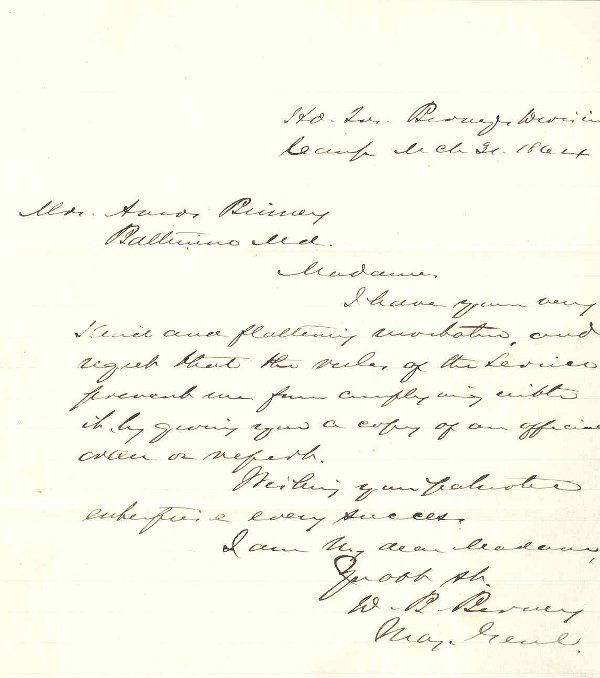 Hd. Qrs. Birney's Division
Camp Mch 21. 1864
Mrs. Amos Binney
Baltimore Md.
Madame,
I have your very
kind and flattering invitation, and
regret that the rules of the Service
prevent me from complying with
it by giving you a copy of an official
order or report.
Wishing your patriotic
enterprise every succes.
I am my dear Madame,
Yr obt St.
D. B. Birney
Maj. Genl.